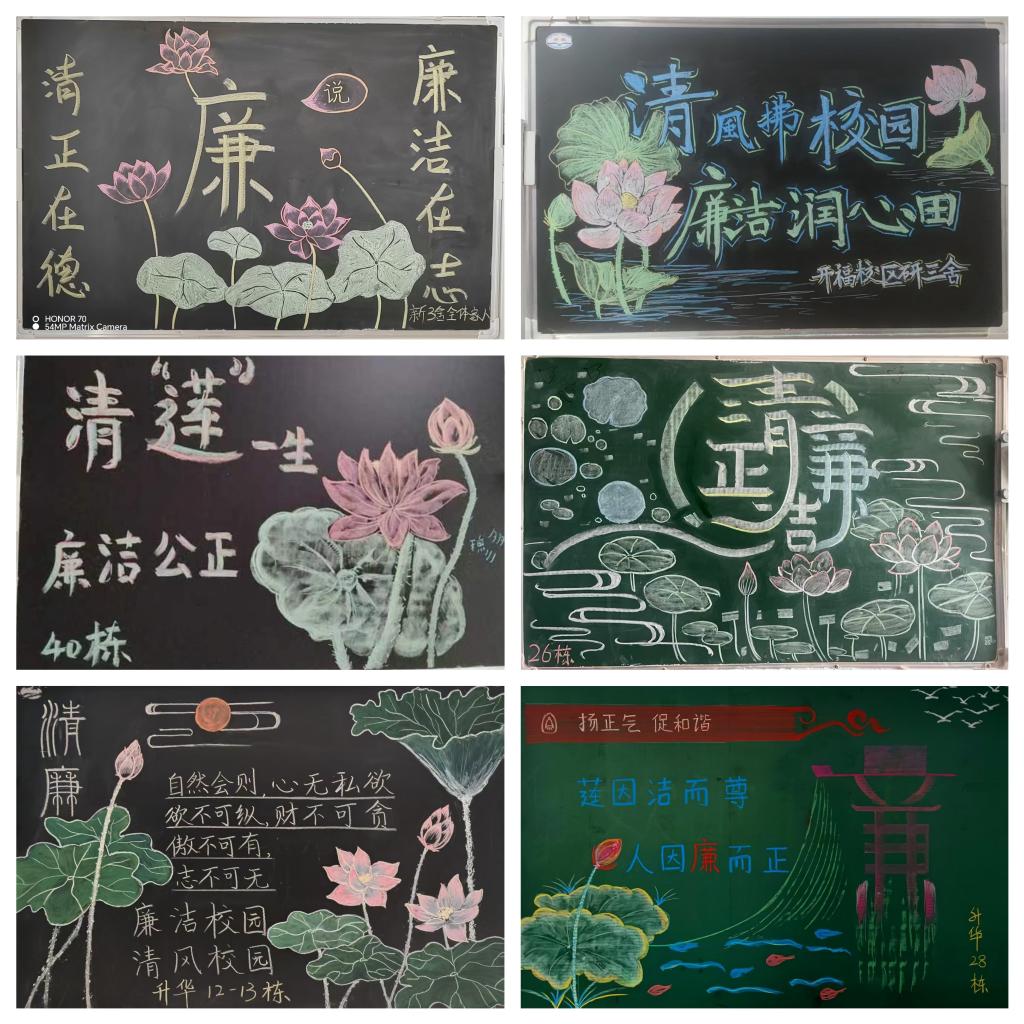 清正在德
廉
说
廉洁在志
新3舍全体舍人
HONOR 70
54MP Matrix Camera
清風拂校园
廉洁润心田
开福校区研三舍
清“莲”一生
廉洁公正
40栋
清正廉洁
26栋
清廉
自然会则,心无私欲
欲不可纵,财不可贪
傲不可有,
志不可无
廉洁校园
清风校园
升华12-13栋
扬正气 促和谐
莲因洁而尊
人因廉而正
升华28栋